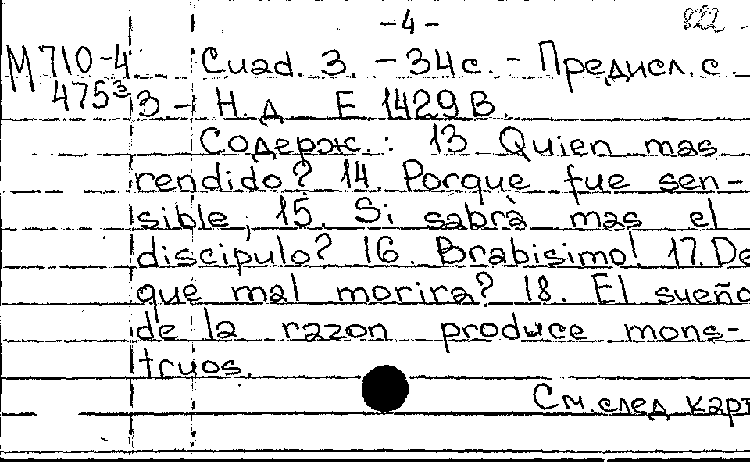 -4-
М 710-4 Cuad. 3. - 34 с. - Предисл. с
475³ 3. - Н. д. E 1429 B.
Содерж.: 13 Quien mas
rendido? 14. Porque fue sen-
sible, 15. Si sabrà mas el
discipulo? 16. Brabisimo! 17. De
que mal morira? 18. El sueño
de la razon produce mons-
truos.
См. след карт